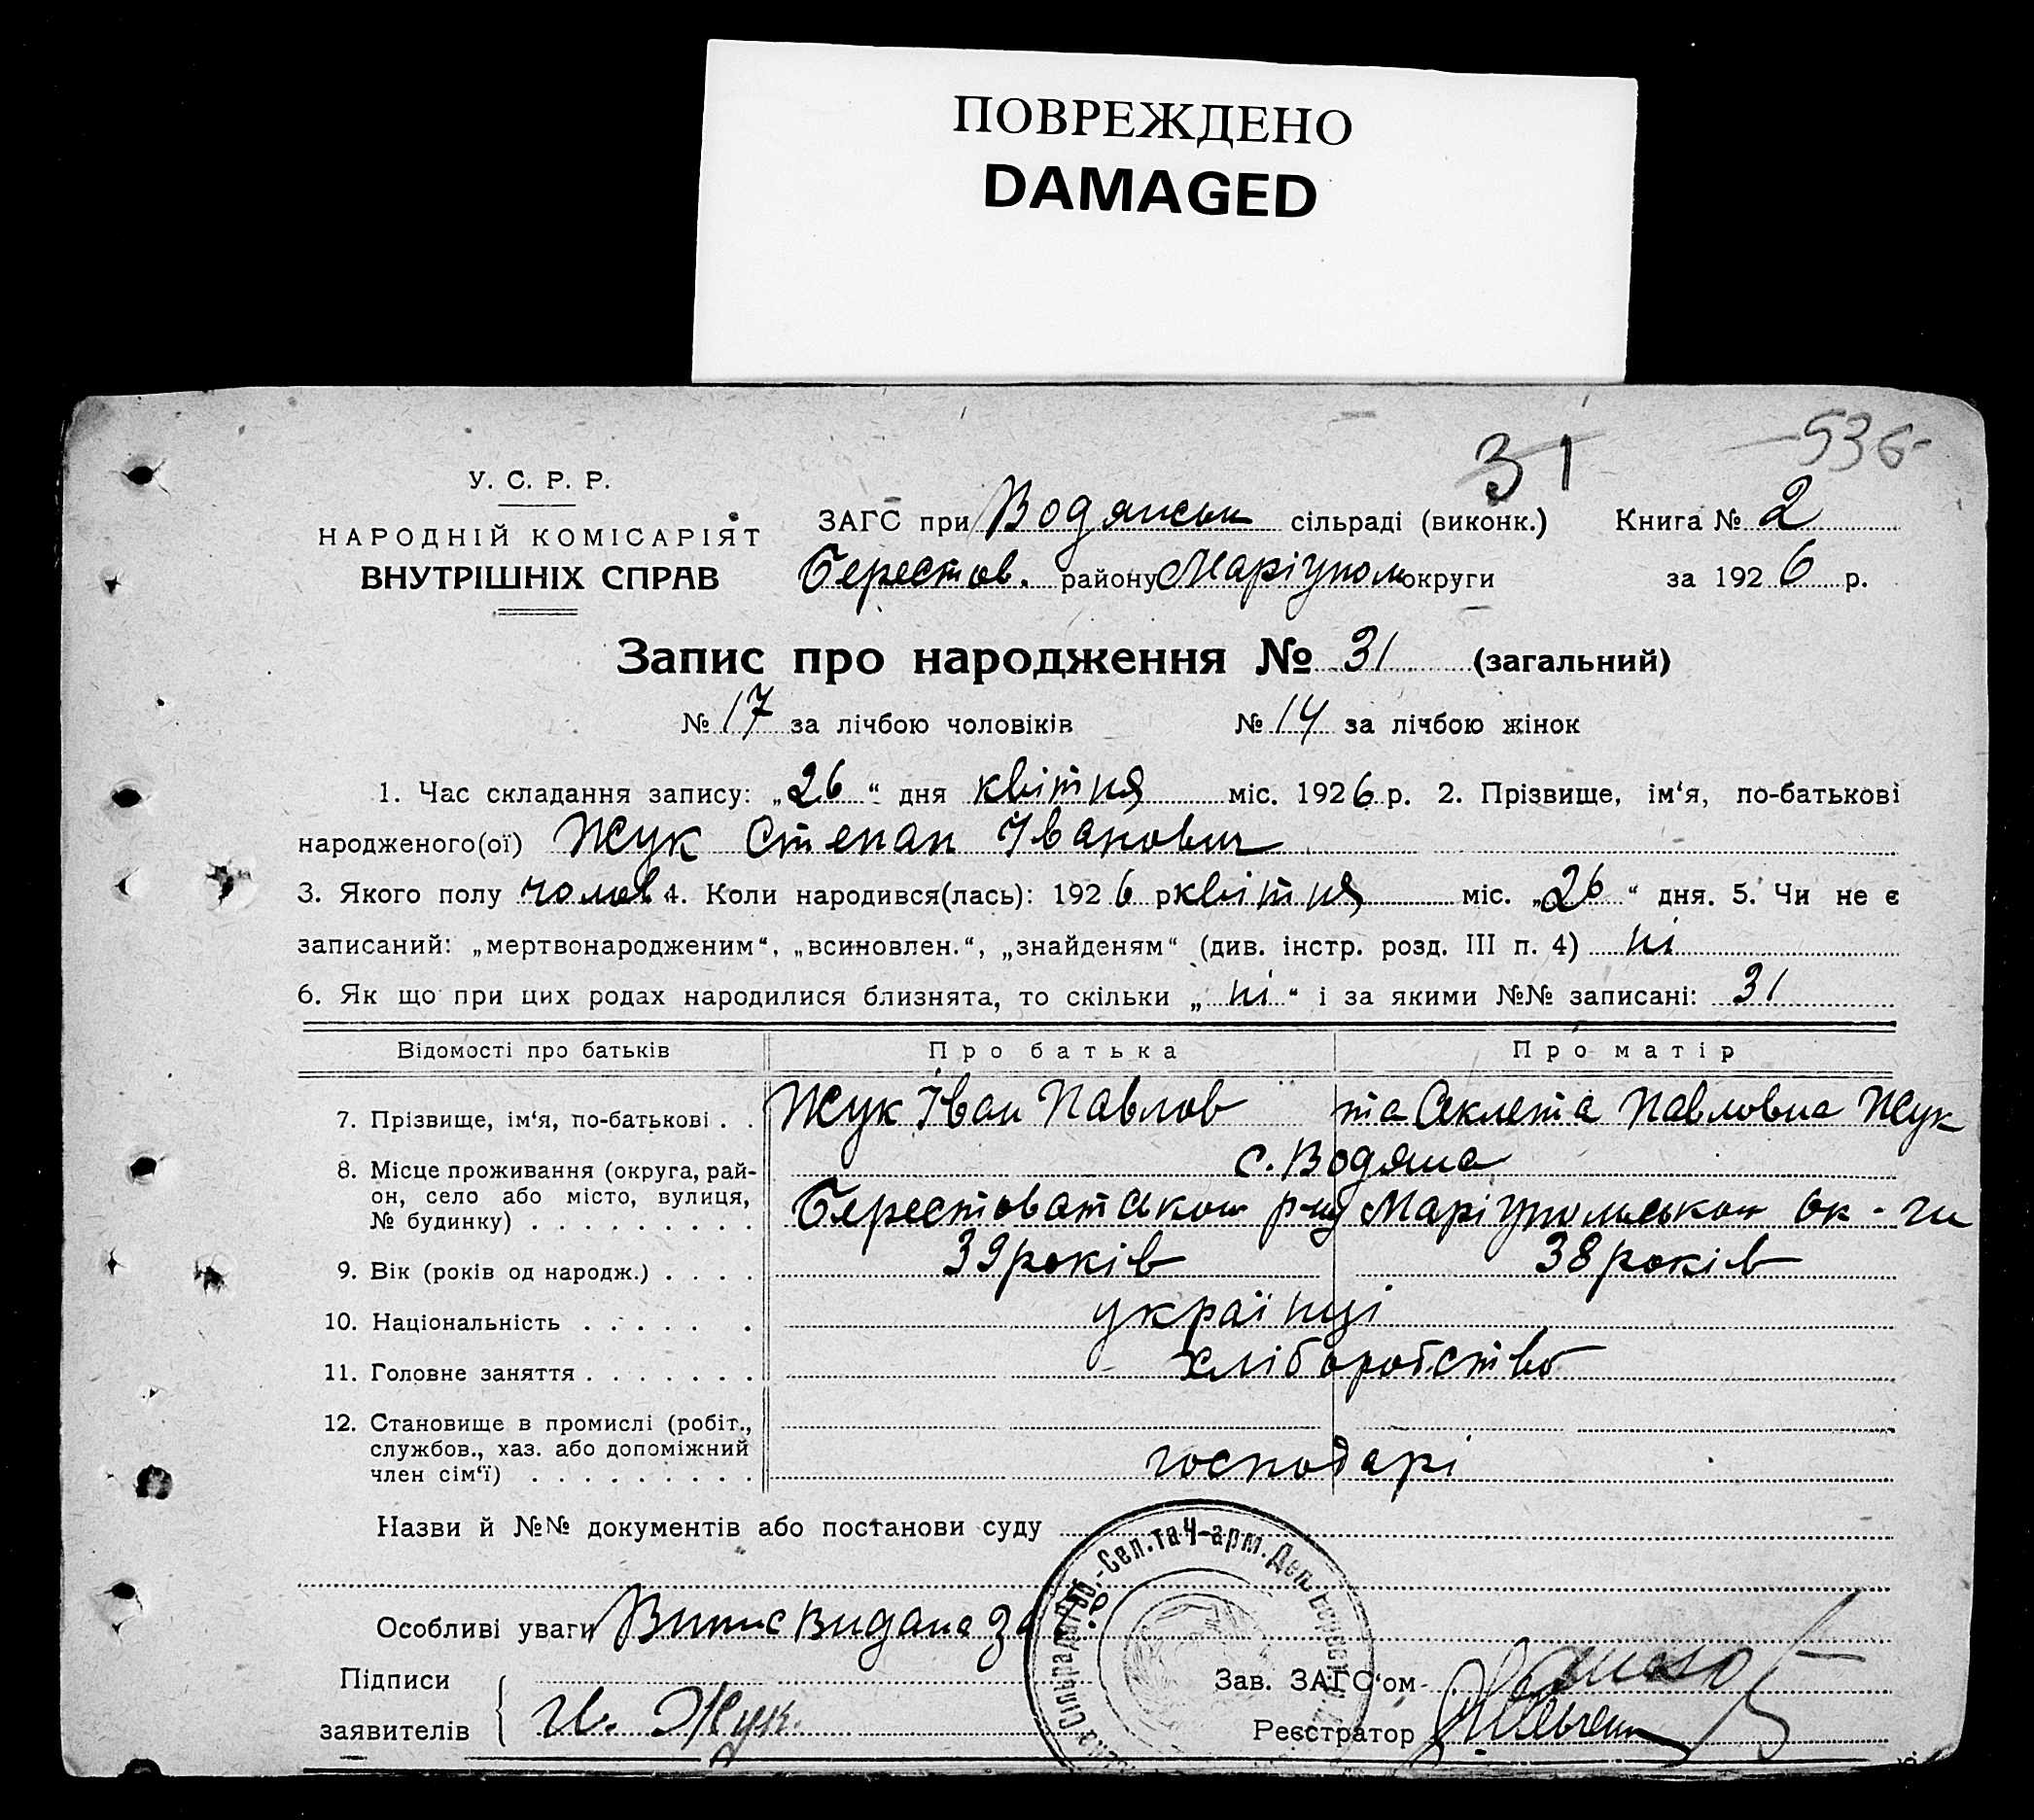 ПОВРЕЖДЕНО
DAMAGED
31 536
У. С. Р. Р.
НАРОДНІЙ КОМІСАРІЯТ
ВНУТРІШНІХ СПРАВ
ЗАГС при Водянськ сільраді (виконк.) Книга № 2
Берестов. району Маріупол округи за 1926 р.
Запис про народження № 31 (загальний)
№ 17 за лічбою чоловіків № 14 за лічбою жінок
1. Час складання запису: „26“ дня квітня міс. 1926 р. 2. Прізвище, ім‘я, по-батькові
народженого(ої) Жук Степан Іванович
3. Якого полу чолов 4. Коли народився(лась): 1926 р квітня міс. „26“ дня. 5. Чи не є
записаний: „мертвонародженим“, „всиновлен.“, „знайденям“ (див. інстр. розд. III п. 4) ні
6. Як що при цих родах народилися близнята, то скільки „ні“ і за якими №№ записані: 31
Відомості про батьків Про батька Про матір
7. Прізвище, ім‘я, по-батькові . . Жук Іван Павлов та Павловна Жук
8. Місце проживання (округа, рай-
он, село або місто, вулиця,
№ будинку) . . . . . . . . .
с. Водяна
Берестоватськ р-ну Маріупольськ ок-ги
9. Вік (років од народж.) . . . . 39 років 38 років
10. Національність . . . . . . українці
11. Головне заняття . . . . . . . хліборобство
12. Становище в промислі (робіт.,
службов., хаз. або допоміжний
член сім‘ї) . . . . . . . . . господарі
Назви й №№ документів або постанови суду
Особливі уваги Випис видана за
Підписи
заявителів И. Жук.
Зав. ЗАГС‘ом
Реєстратор
Сільрада Роб.-Сел. та Ч-арм. Деп.